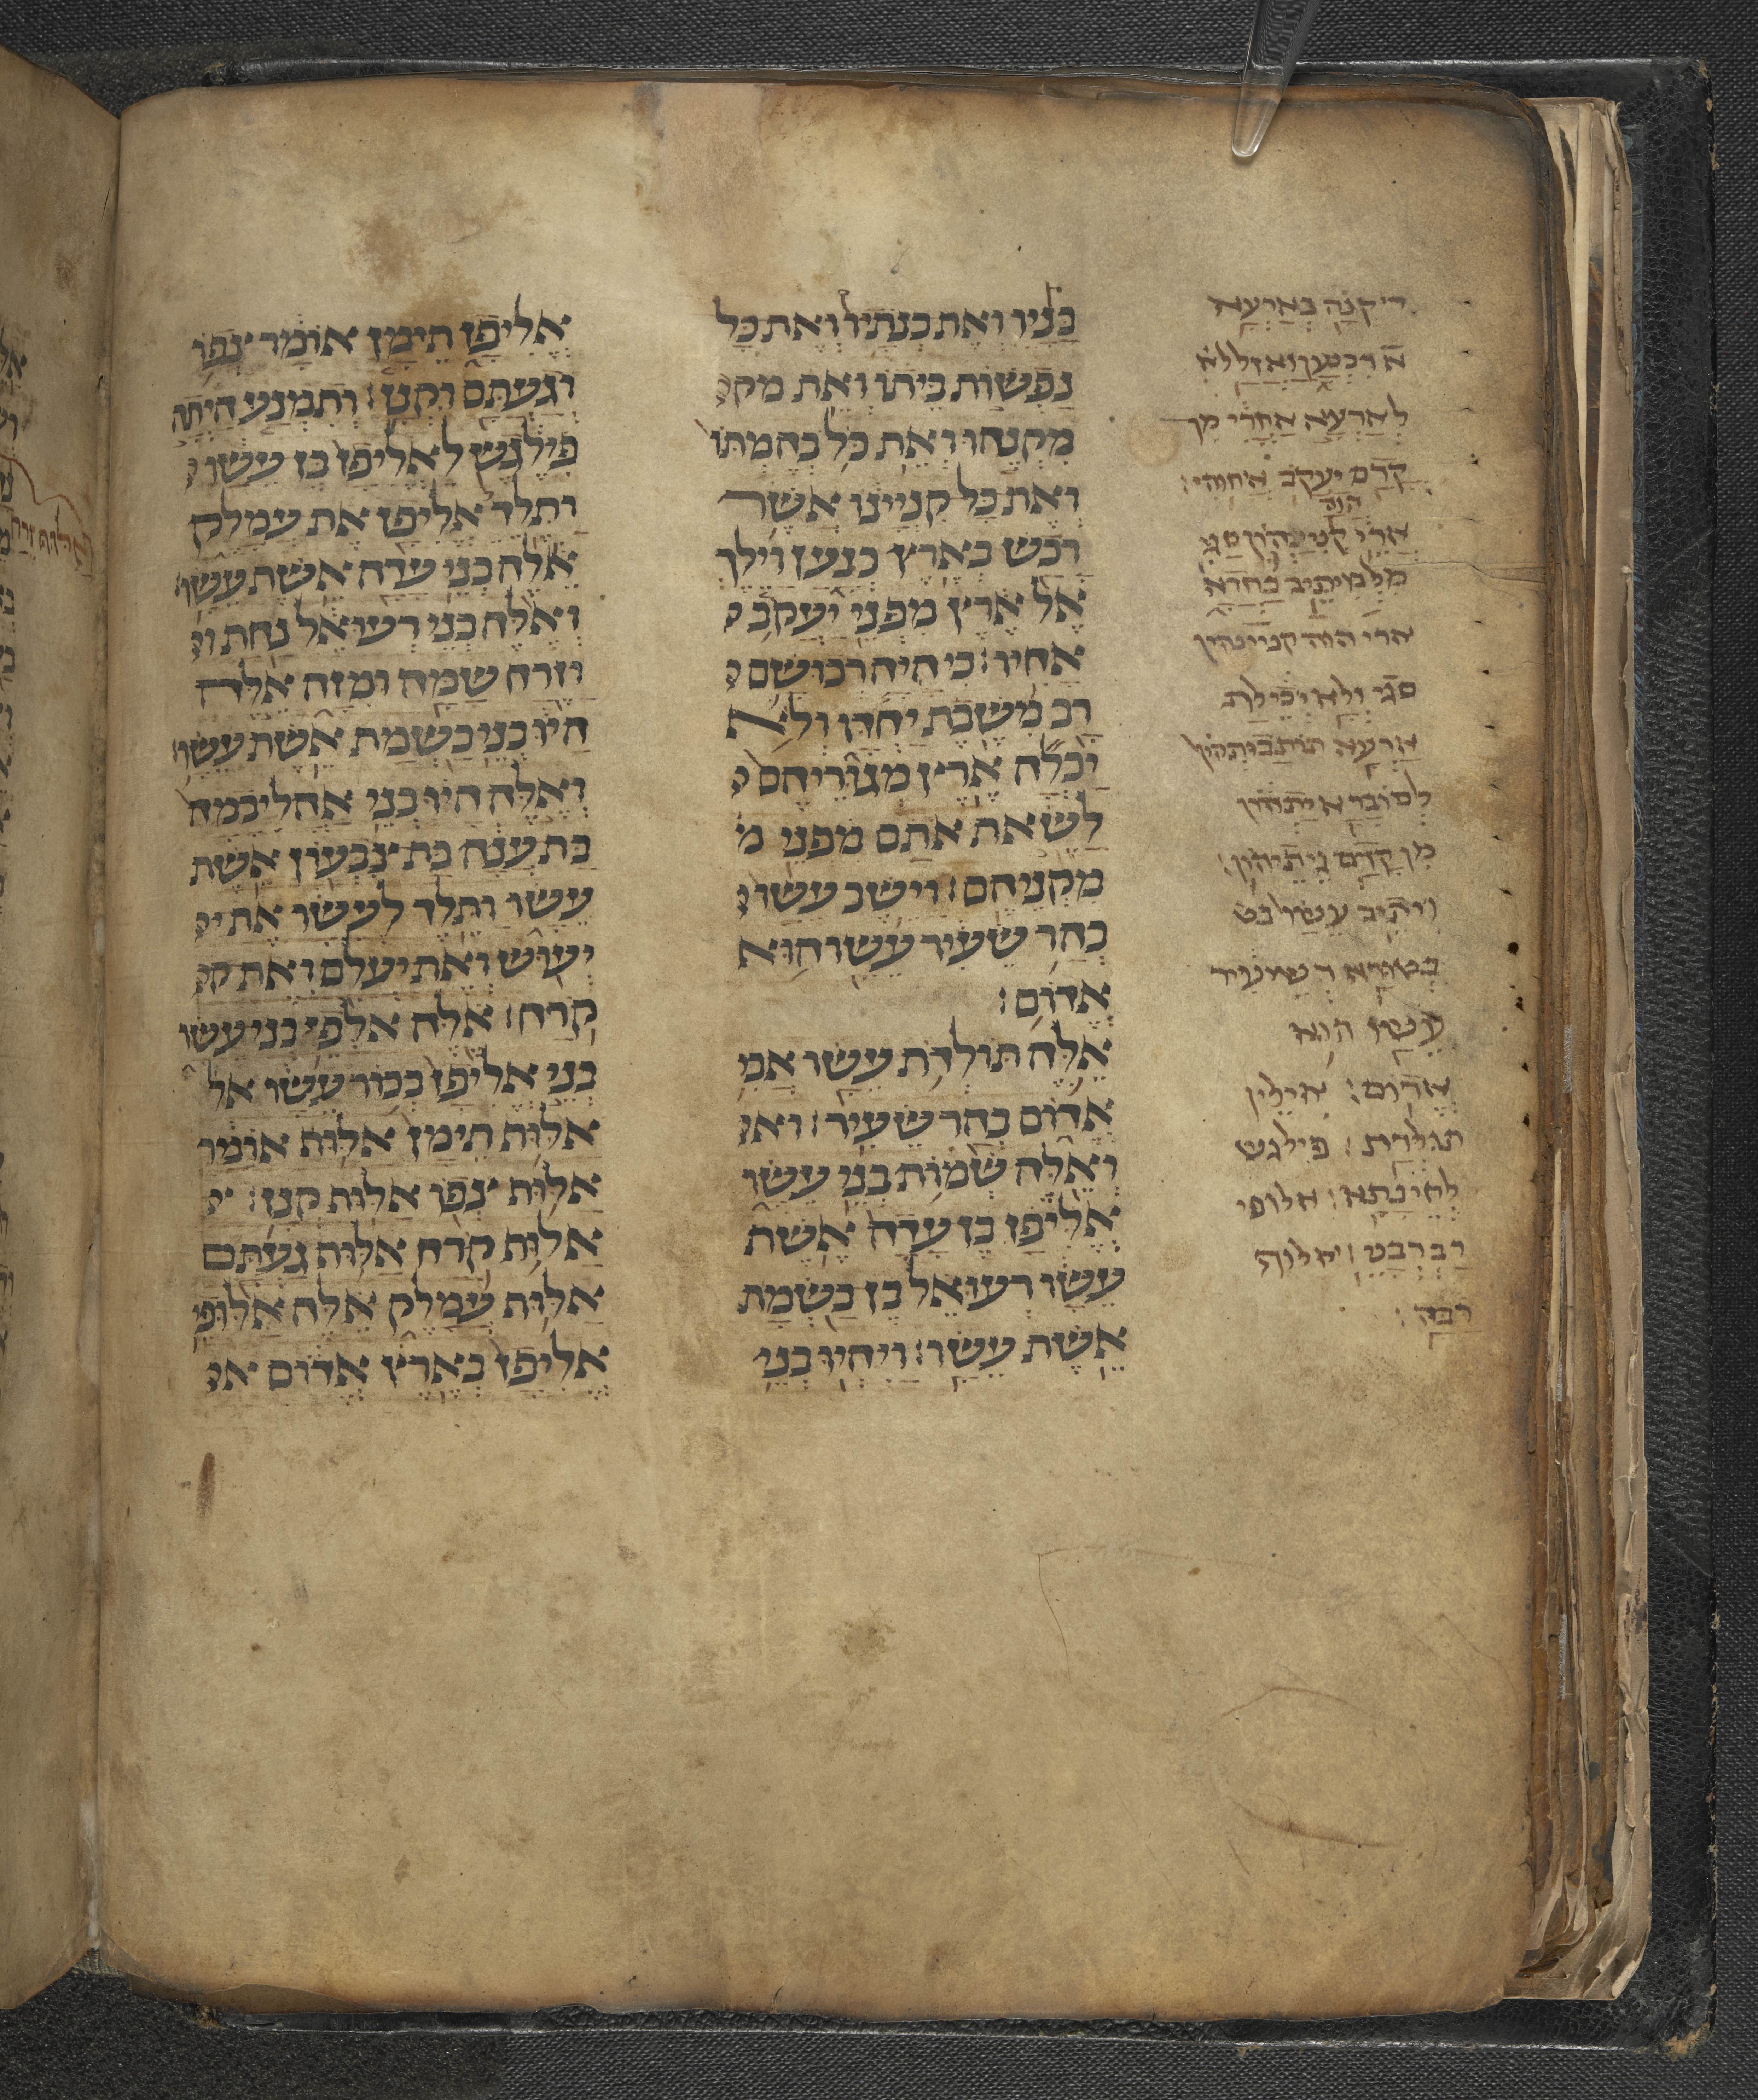 דיקנה בארעא
לארעא אחרי מן
קדם יעקב אחוהי׃
ארי הוה קנינהון
סגי ולא יכילת
ארעא תותבותהון
לסוברא יתהון
מן קדם גיתיהון׃
ויתיב עשו
בטורא דשעיר
עשו הוא
אדום׃ אילין
תולדת׃ פילגש
לחינתא׃ אלופי
רברבט׃ אלוף
רבה׃
בניו ואת בנתיו ואת כל
נפשות ביתו ואת מק
מקנהו ואת כל בהמתו
ואת כל קניינו אשר
רכש בארץ כנען וילך
אל ארץ מפני יעקב
אחיו׃ כי היה רכושם
רב משבת יחדו ולא
יכלה ארץ מגוריהם
לשאת אתם מפני מ
מקניהם׃ וישב עשו
בהר שעיר עשו הוא
אדום׃
אלה תולדת עשו אב
אדום בהר שעיר׃ וא
ואלה שמות בני עשו
אליפז בן עדה אשת
עשו רעואל בן בשמת
אשת עשו׃ ויהיו בני
אליפז תימן אומר צפו
וגעתם וקנז׃ ותמנע היתה
פילגש לאליפז בן עשו
ותלד אליפז את עמלק
אלה בני עדה אשת עשו׃
ואלה בני רעואל נחת ו
וזרח שמה ומזה אלה
היו בני בשמת אשת עשו׃
ואלה היו בני אהליבמה
בת ענה בת צבעון אשת
עשו ותלד לעשו את י
יעוש ואת יעלם ואת ק
קרח׃ אלה אלפי בני עשו
בני אליפז בכור עשו אל
אלוף תימן אלוף אומר
אלוף צפו אלוף קנז׃
אלוף קרח אלוף געתם
אלוף עמלק אלה אלופי
אליפז בארץ אדום א